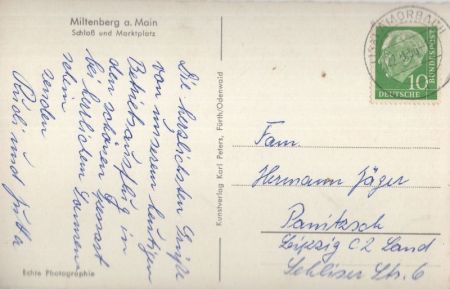 Miltenberg a. Main
Schloß und Marktplatz
Die herzlichsten Grüße
von unserem heutigen
Betriebsausflug in
den schönen Spessart
bei herrlichem Sonnen
schein
senden
Rudi und Jutta
Echte Photographie
Kunstverlag Karl Peters, Fürth/Odenwald
AMORBACH
10
DEUTSCHE
BUNDESPOST
Fam.
Hermann Jäger
Panitzsch
Leipzig C 2 Land
Str. 6